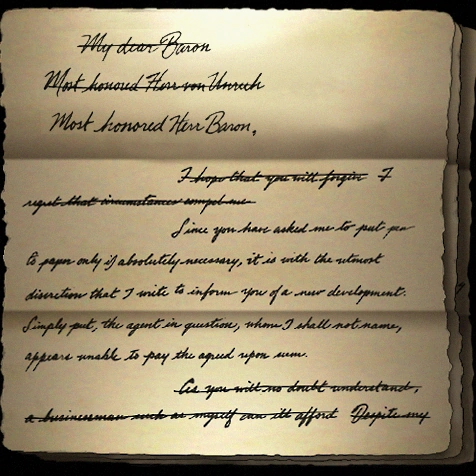 My dear Baron
Most honored Herr von Unruh
Most honored Herr Baron,
I hope that you will forgive I
regret that circumstances compel me
Since you have asked me to put pen
to paper only if absolutely necessary, it is with the utmost
discretion that I write to inform you of a new development.
Simply put, the agent in question, whom I shall not name,
appears unable to pay the agreed upon sum.
As you will no doubt understand,
a businessman such as myself can ill afford Despite my